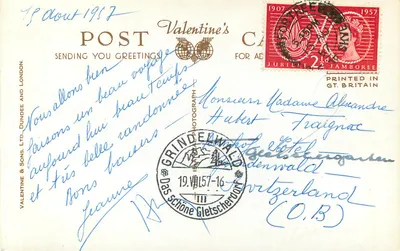 15 août 1957
POST CA
Valentine's
SENDING YOU GREETINGS
FOR AD
1907 1957
JUBILEE JAMBOREE
2½
PRINTED IN
GT. BRITAIN
VALENTINE & SONS, LTD., DUNDEE AND LONDON
PHOTOGRAPH
Nous allons bien
faisons un beau voyage
aujourd'hui beau temps
et très belle randonnée
Bons baisers —
Jeanne
Monsieur Madame Alexandre
Hubert
Hôtel
Grindelwald
Switzerland
(O.B)
GRINDELWALD
19.VIII.57-16
Das schöne Gletscherdorf